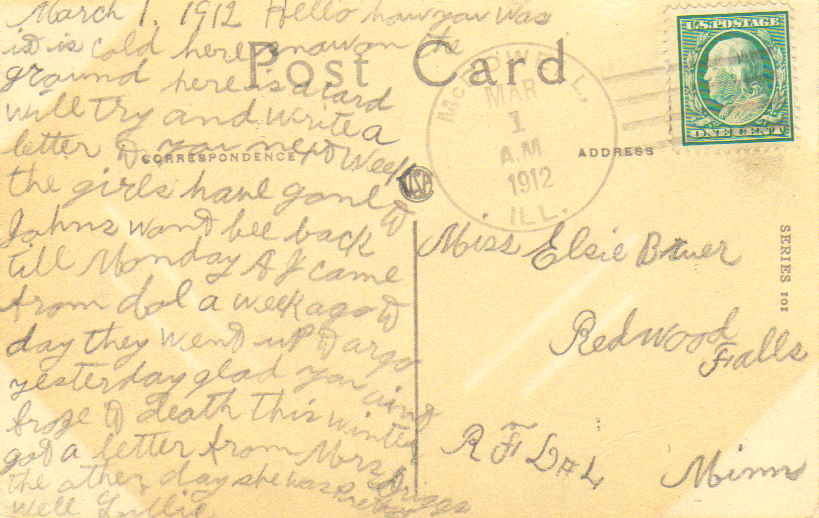 March 1. 1912 Hello how you was
it is cold here snow on the
ground here is a card
will try and write a
letter to you next week
the girls have gone to
Johns wont bee back
till Monday A J came
from dol a week ago to
day they went up to argo
yesterday glad you aint
froze to death this winter
got a letter from Mrs Griggs
the other day she was
well Lullie
Post Card
CORRESPONDENCE
ADDRESS
USA
MAR
1
A.M
1912
ILL.
U.S. POSTAGE
ONE CENT
SERIES 101
Miss Elsie Bauer
Redwood
Falls
R F D # 4
Minn